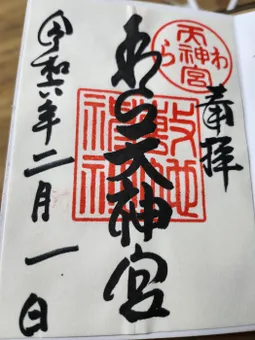 奉拝
わら天神宮
わら天神宮
敷地神社
令和六年二月一日